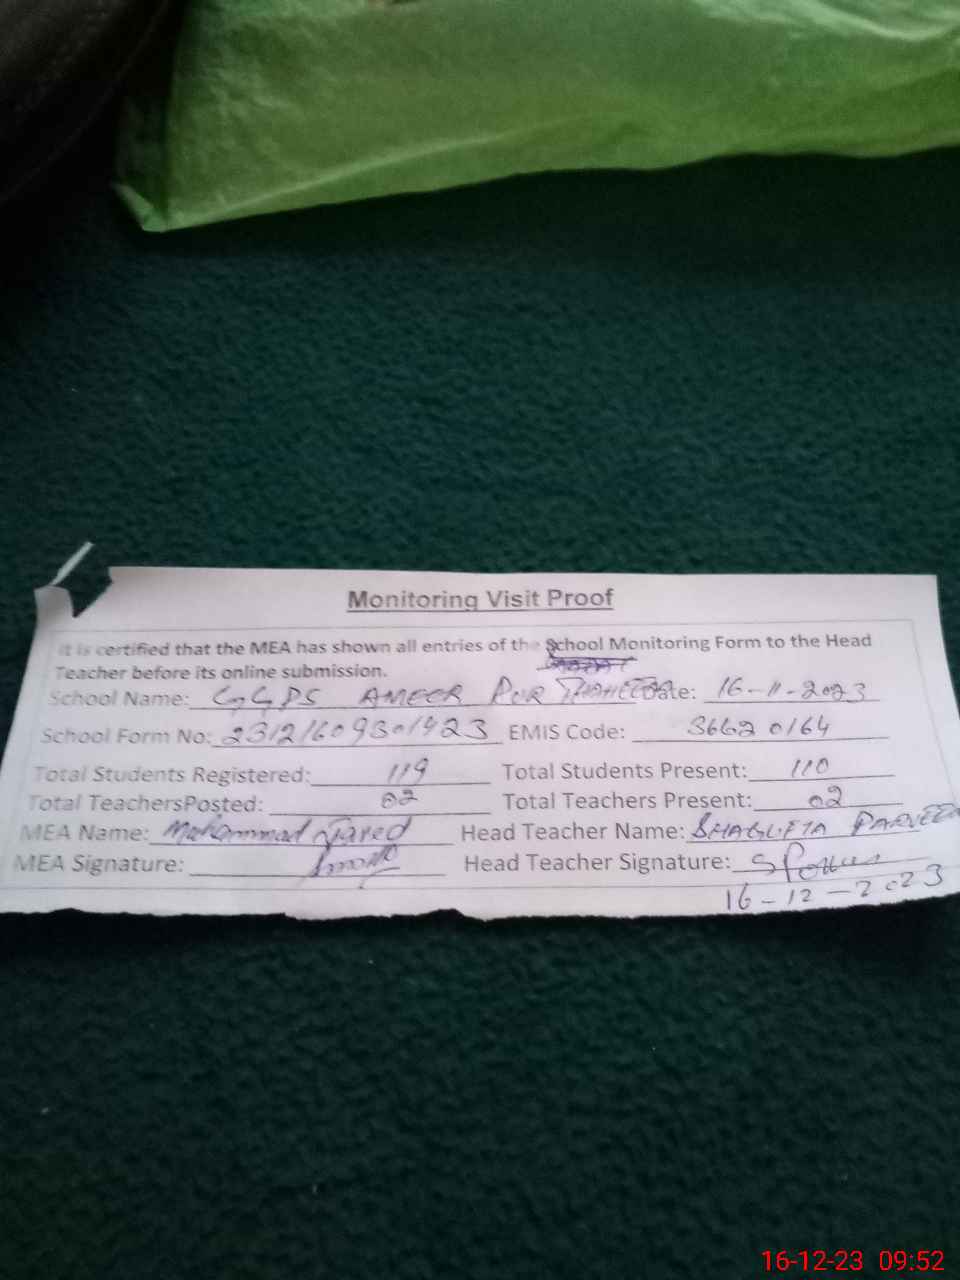 Monitoring Visit Proof
It is certified that the MEA has shown all entries of the School Monitoring Form to the Head
Teacher before its online submission.
School Name: GGPS AMEER PUR Date: 16-11-2023
School Form No: 23121609301423 EMIS Code: 36620164
Total Students Registered: 119 Total Students Present: 110
Total TeachersPosted: 02 Total Teachers Present: 02
MEA Name: Muhammad Javed Head Teacher Name: SHAGUFTA PARVEEN
MEA Signature: Head Teacher Signature:
16-12-2023
16-12-23 09:52